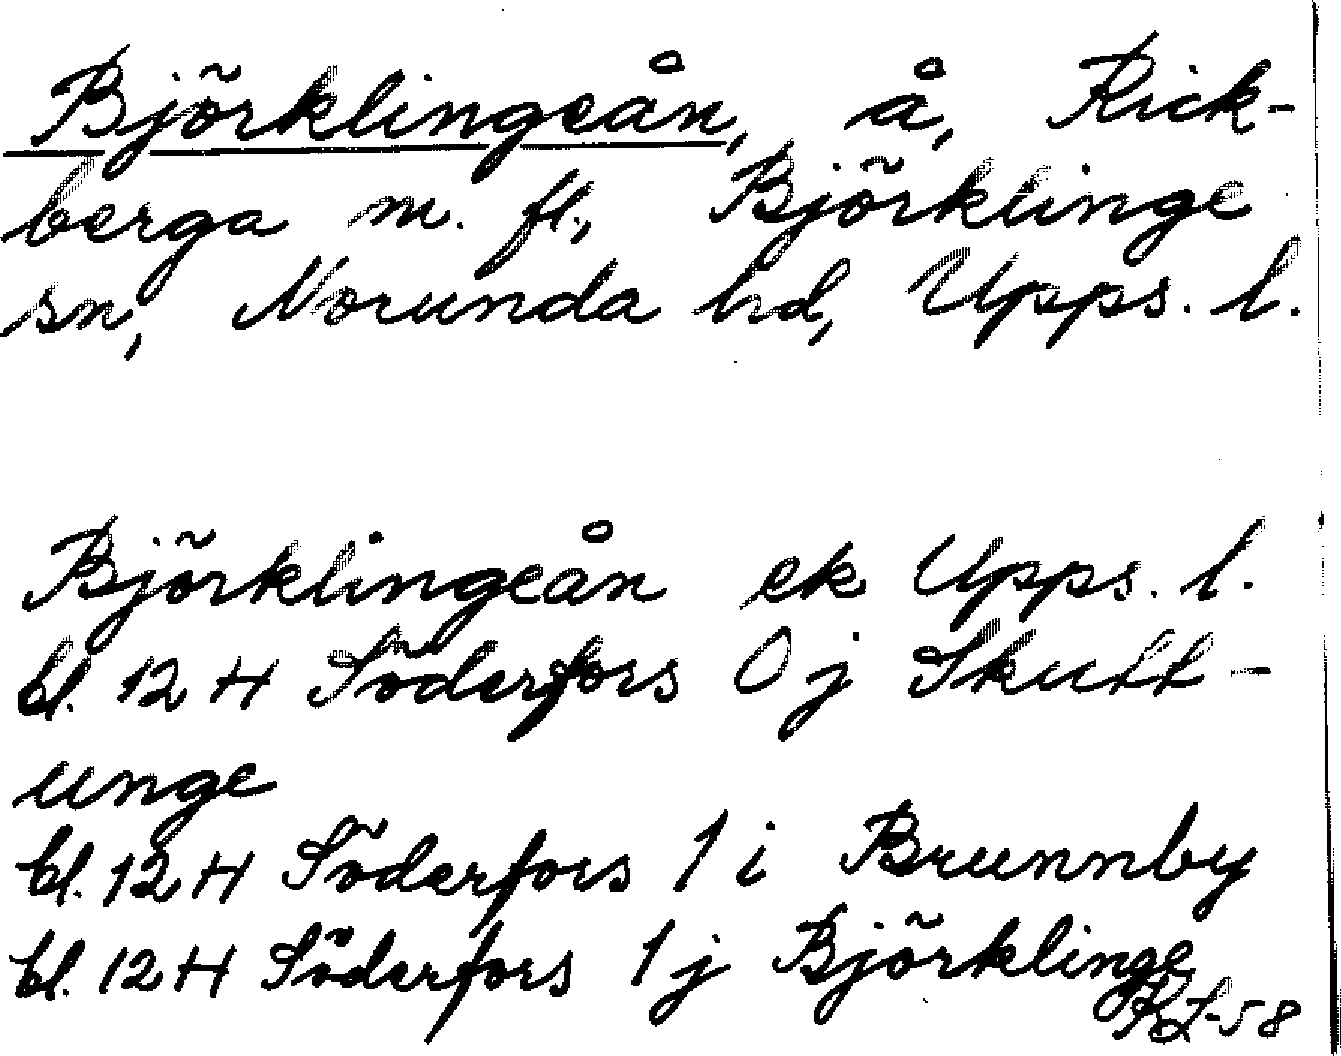 Björklingeån, å, Rick-
berga m. fl., Björklinge
sn, Norunda hd, Upps. l.
Björklingeån ek Upps. l.
bl. 12 H Söderfors 0 j Skutt-
unge
bl. 12 H Söderfors 1 i Brunnby
bl. 12 H Söderfors 1 j Björklinge
-58